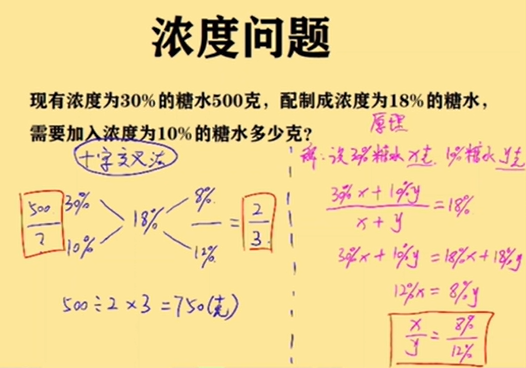 浓度问题
现有浓度为30%的糖水500克，配制成浓度为18%的糖水，
需要加入浓度为10%的糖水多少克？
十字交叉法
500/? 30% 10% 18% 8%/12% = 2/3
500÷2×3=750(克)
原理
解：设30%糖水x克，10%糖水y克
(30%x+10%y)/(x+y)=18%
30%x+10%y=18%x+18%y
12%x=8%y
x/y=8%/12%